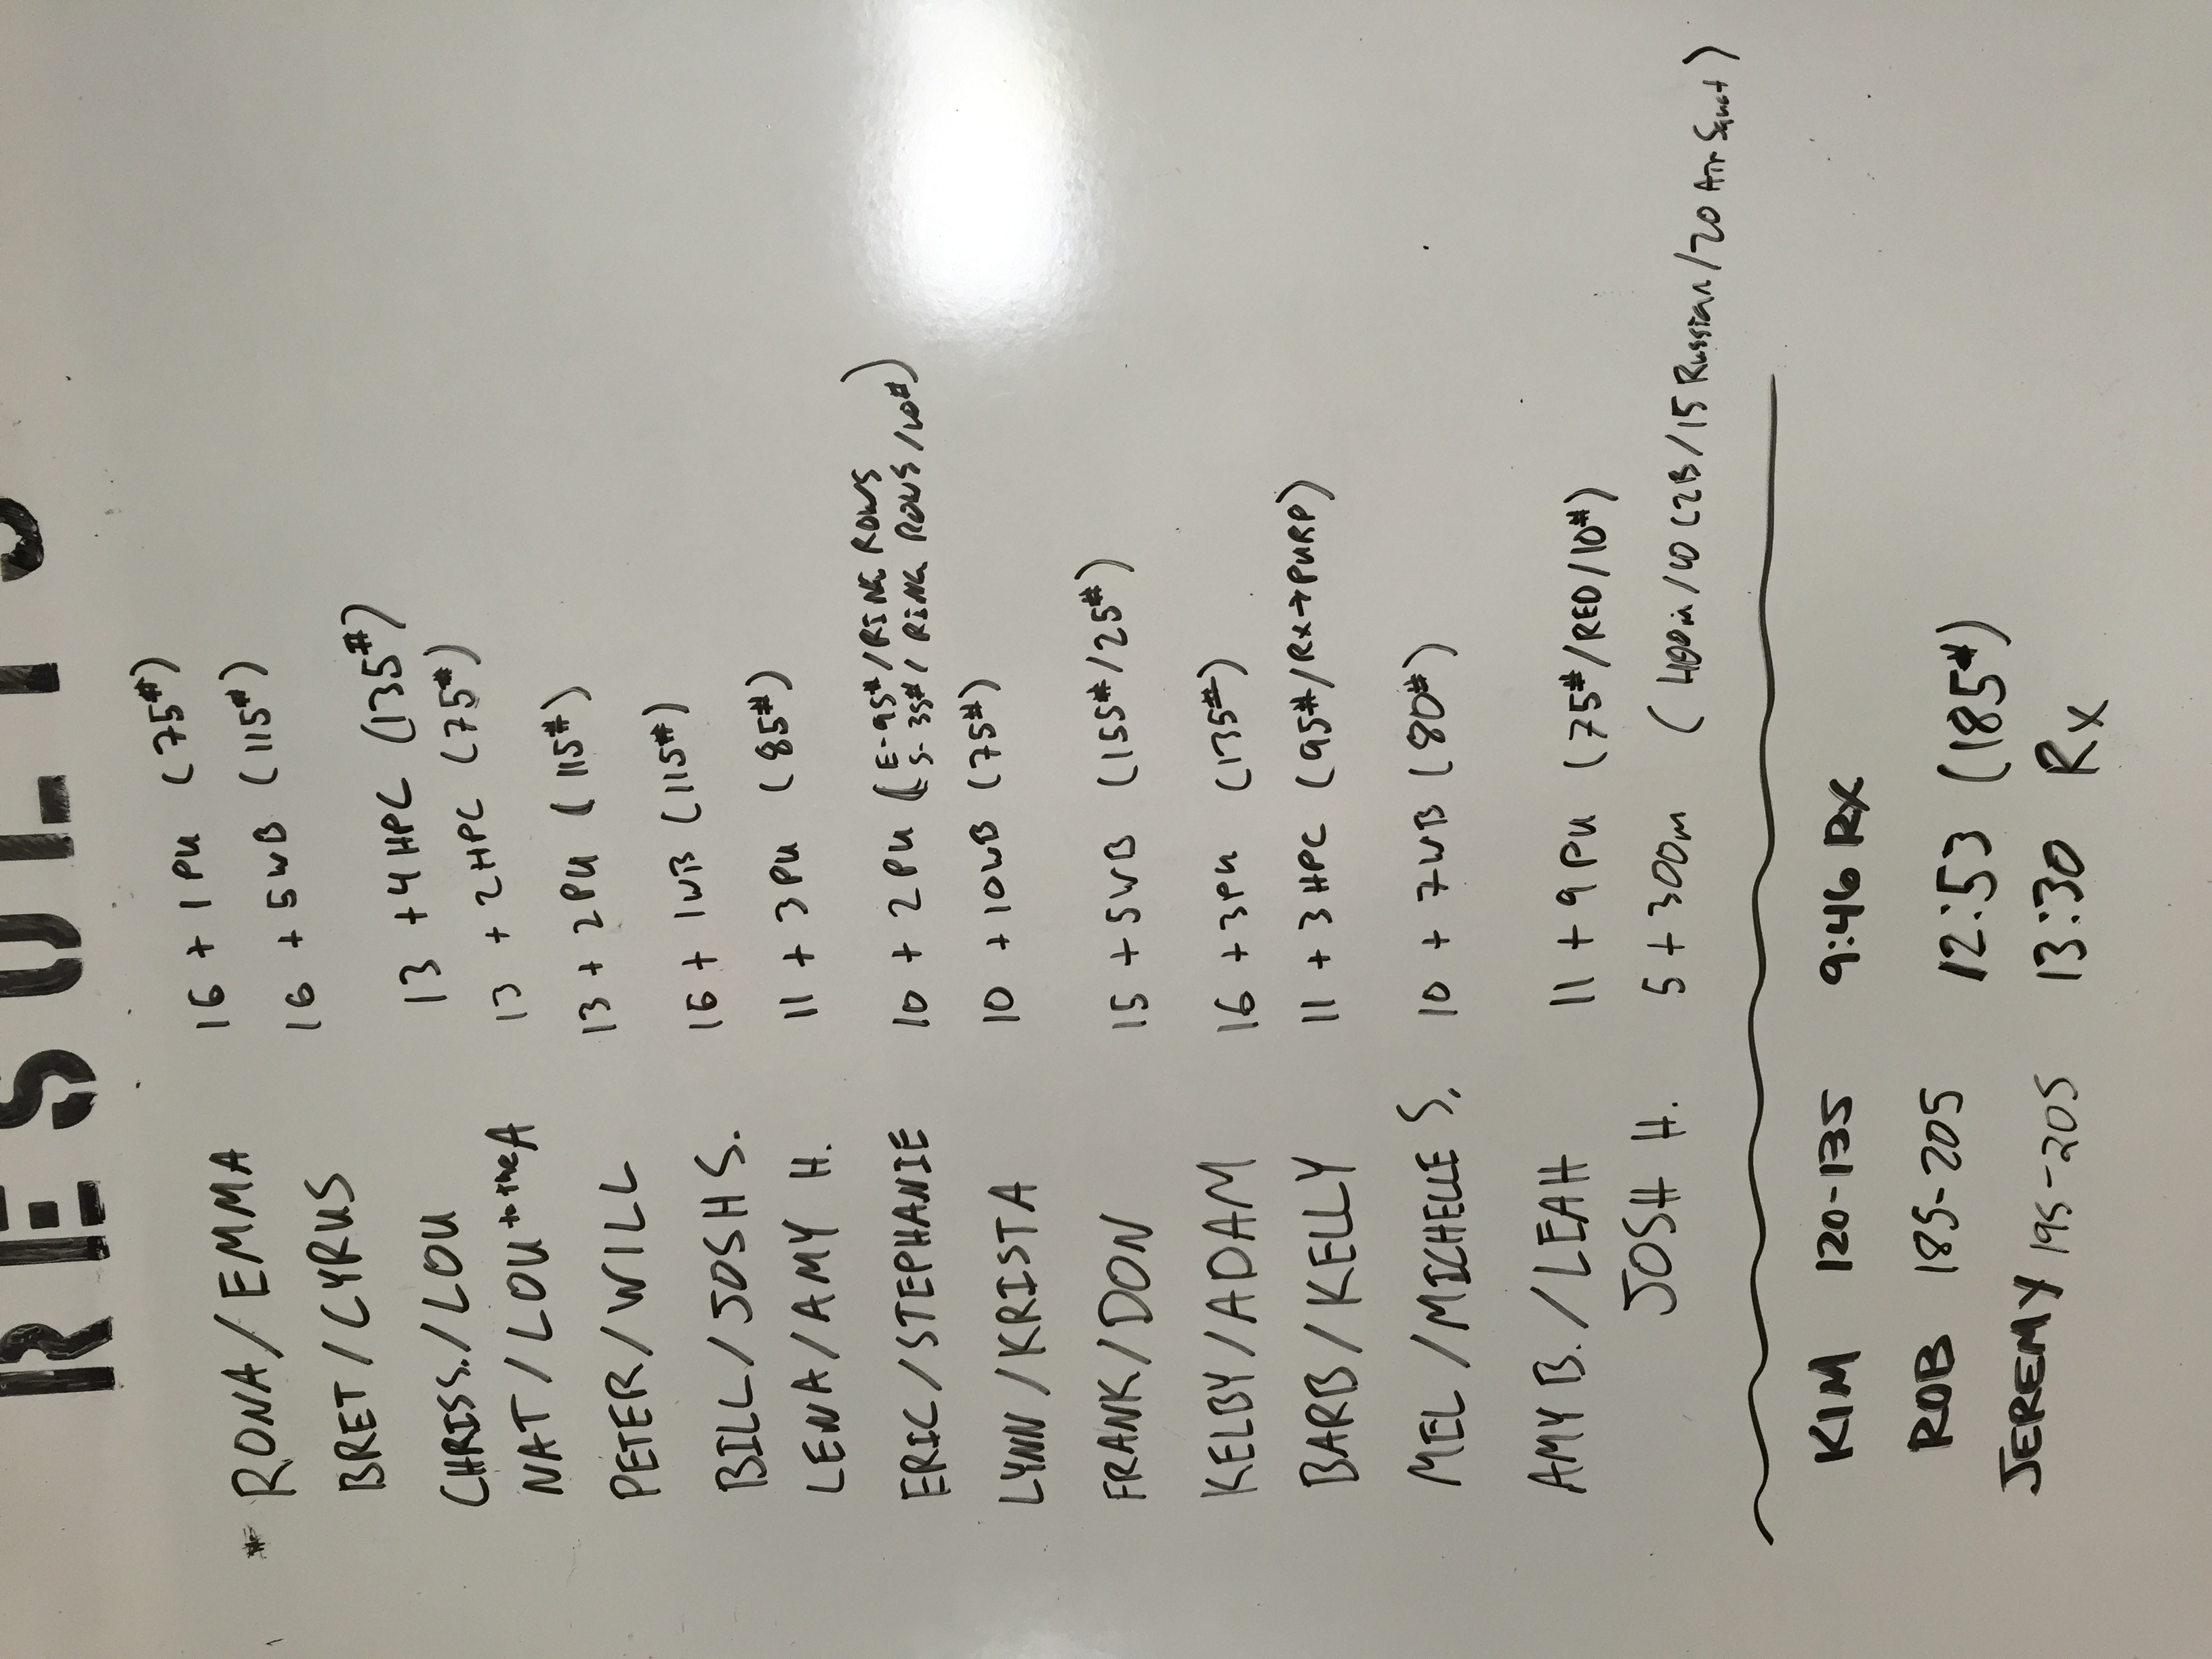 RESULTS
* RONA/EMMA 16 + 1PU (75#)
BRET/CYRUS 16 + 5WB (115#)
CHRIS S./LOU 13 + 4HPC (135#)
NAT/LOU 13 + 2HPC (75#)
PETER/WILL 13 + 2PU (115#)
BILL/JOSH S. 16 + 1WB (115#)
LENA/AMY H. 11 + 3PU (85#)
ERIC/STEPHANIE 10 + 2PU (E-95#/RING ROWS
S-35#/RING ROWS/10#)
LYNN/KRISTA 10 + 10WB (75#)
FRANK/DON 15 + 5WB (155#/25#)
KELBY/ADAM 16 + 3PU (135#)
BARB/KELLY 11 + 3HPC (95#/RX→PURP)
MEL/MICHELLE S. 10 + 7WB (80#)
AMY B./LEAH 11 + 9PU (75#/RED/10#)
JOSH H. 5 + 300m (400m/40 C2B/15 Russian/20 Air Squat)
KIM 120-135 9:46 RX
ROB 185-205 12:53 (185#)
JEREMY 195-205 13:30 Rx